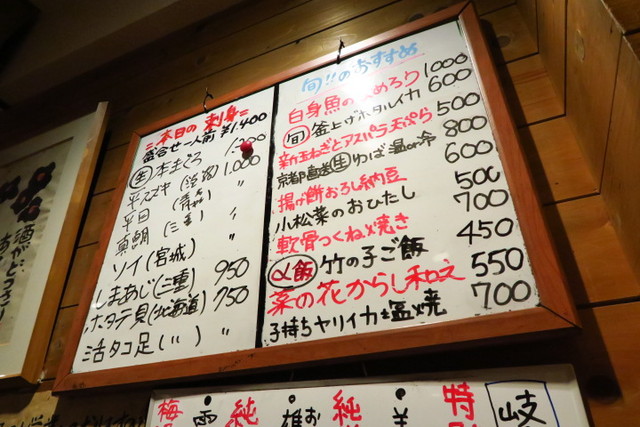 =本日の刺身=
盛合せ一人前 ¥1.400
生 本まぐろ 1.200
平スズキ 1.000
平目 (青森) 〃
真鯛 (三重) 〃
ソイ (宮城) 〃
しまあじ (三重) 950
ホタテ貝 (北海道) 750
活タコ足 (〃) 〃
旬!!のおすすめ
白身魚の 1000
旬 釜上げホタルイカ 600
新玉ねぎとアスパラ天ぷら 500
京都直送 生ゆば 温or冷 800
揚げ餅おろし納豆 600
小松菜のおひたし 500
軟骨つくね焼き 700
〆飯 竹の子ご飯 450
菜の花からし和え 550
子持ちヤリイカ塩焼 700
酒が
特
岐